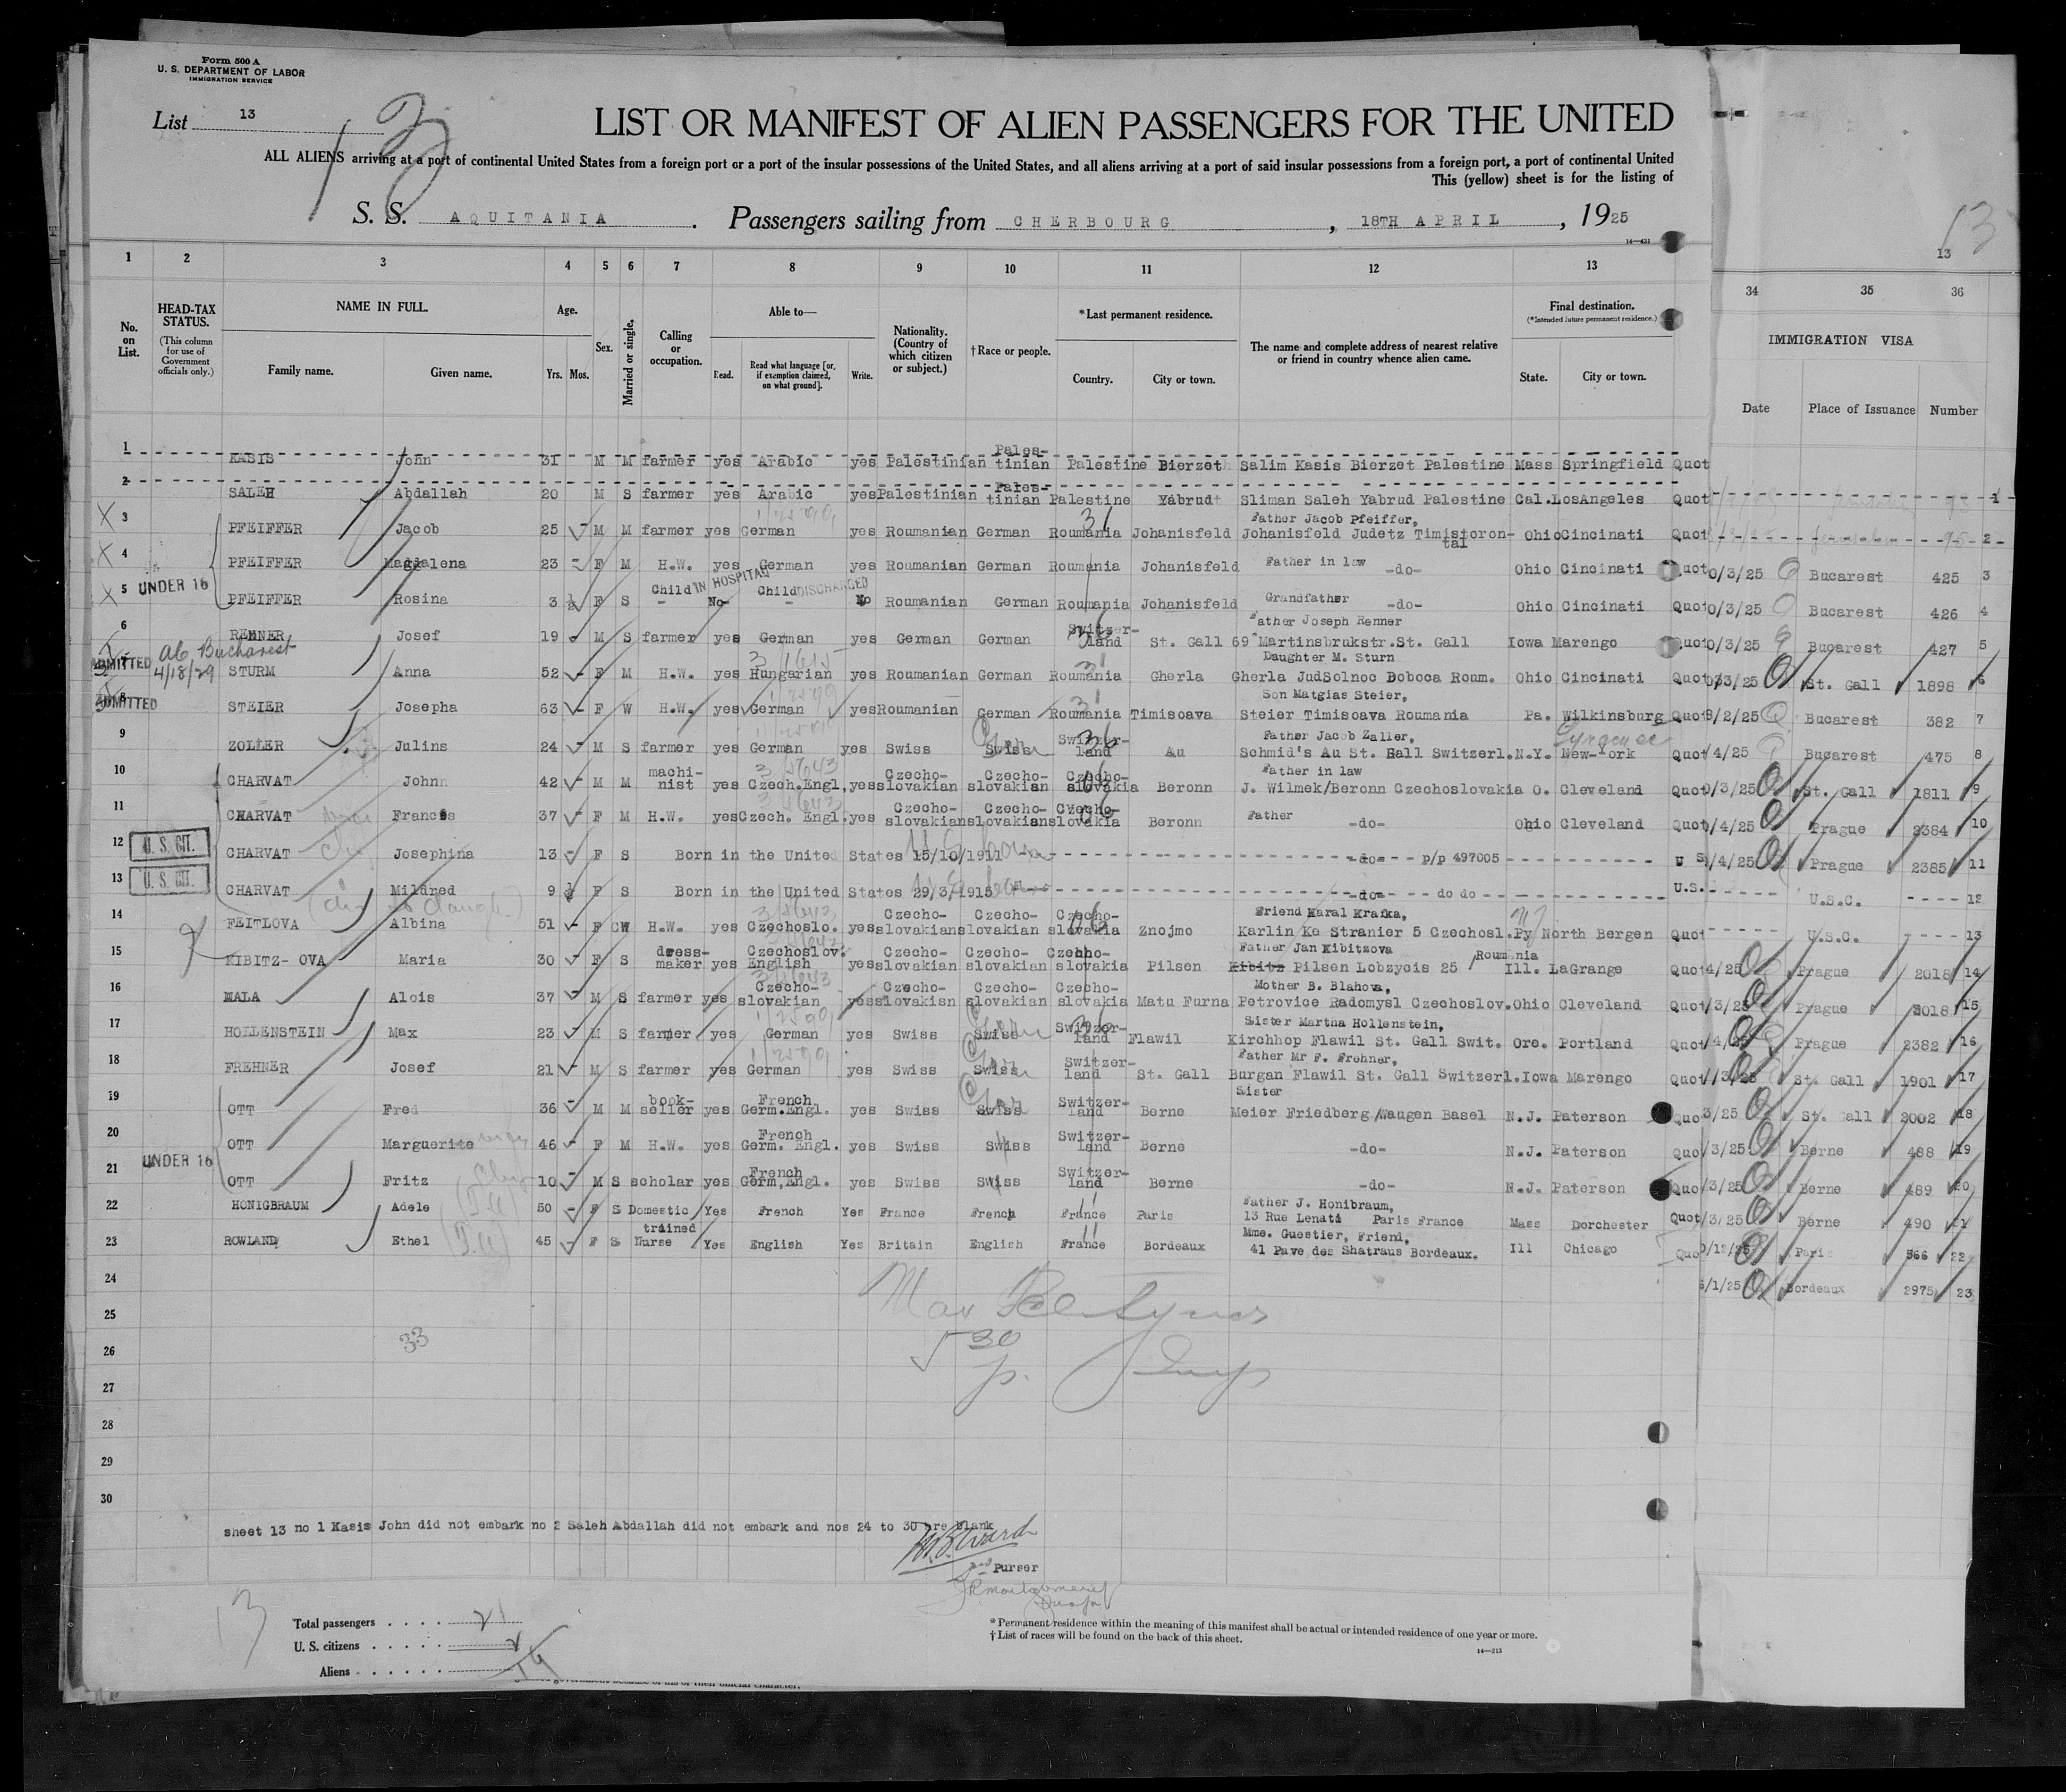 Form 500 A
U. S. DEPARTMENT OF LABOR
IMMIGRATION SERVICE
List 13
LIST OR MANIFEST OF ALIEN PASSENGERS FOR THE UNITED
ALL ALIENS arriving at a port of continental United States from a foreign port or a port of the insular possessions of the United States, and all aliens arriving at a port of said insular possessions from a foreign port, a port of continental United
This (yellow) sheet is for the listing of
S. S. AQUITANIA. Passengers sailing from CHERBOURG, 18TH APRIL, 1925
14—431
13
13
1 2 3 4 5 6 7 8 9 10 11 12 13 34 35 36
No. on List.
HEAD-TAX STATUS.
(This column for use of Government officials only.)
NAME IN FULL.
Family name. Given name.
Age.
Yrs. Mos.
Sex.
Married or single.
Calling or occupation.
Able to—
Read. Read what language [or, if exemption claimed, on what ground]. Write.
Nationality. (Country of which citizen or subject.)
†Race or people.
*Last permanent residence.
Country. City or town.
The name and complete address of nearest relative or friend in country whence alien came.
Final destination.
(*Intended future permanent residence.)
State. City or town.
IMMIGRATION VISA
Date Place of Issuance Number
1 KASIS John 31 M M farmer yes Arabic yes Palestinian Pales-tinian Palestine Bierzet Salim Kasis Bierzet Palestine Mass Springfield Quot
2 SALEH Abdallah 20 M S farmer yes Arabic yes Palestinian Pales-tinian Palestine Yabrud Sliman Saleh Yabrud Palestine Cal. LosAngeles Quot 1
3 PFEIFFER Jacob 25 M M farmer yes German yes Roumanian German Roumania Johanisfeld Father Jacob Pfeiffer, Johanisfeld Judetz Timistoron-tal Ohio Cincinati Quot 2
4 PFEIFFER Magdalena 23 F M H.W. yes German yes Roumanian German Roumania Johanisfeld Father in law -do- Ohio Cincinati Quot 0/3/25 Bucarest 425 3
5 UNDER 16 PFEIFFER Rosina 3 F S Child - IN HOSPITAL No Child - DISCHARGED No Roumanian German Roumania Johanisfeld Grandfather -do- Ohio Cincinati Quot 0/3/25 Bucarest 426 4
6 RENNER Josef 19 M S farmer yes German yes German German Switzer-land St. Gall Father Joseph Renner 69 Martinsbrukstr. St. Gall Iowa Marengo Quot 0/3/25 Bucarest 427 5
Bucharest
ADMITTED 4/18/29
7 STURM Anna 52 F M H.W. yes Hungarian yes Roumanian German Roumania Gherla Daughter M. Sturn Gherla JudSolnoc Doboca Roum. Ohio Cincinati Quot 0/3/25 St. Gall 1898 6
ADMITTED
8 STEIER Josepha 63 F W H.W. yes German yes Roumanian German Roumania Timisoava Son Matgias Steier, Steier Timisoava Roumania Pa. Wilkinsburg Quot 8/2/25 Bucarest 382 7
9 ZOLLER Julins 24 M S farmer yes German yes Swiss Swiss Switzer-land Au Father Jacob Zaller, Schmid's Au St. Gall Switzerl. N.Y. New-York Syracuse Quot /4/25 Bucarest 475 8
10 CHARVAT John 42 M M machi-nist yes Czech.Engl, yes Czecho-slovakian Czecho-slovakian Czecho-slovakia Beronn Father in law J. Wilmek/Beronn Czechoslovakia O. Cleveland Quot 0/3/25 St. Gall 1811 9
11 CHARVAT Frances 37 F M H.W. yes Czech. Engl. yes Czecho-slovakian Czecho-slovakian Czecho-slovakia Beronn Father -do- Ohio Cleveland Quot /4/25 Prague 2384 10
12 U. S. CIT. CHARVAT Josephina 13 F S Born in the United States 15/10/1911 -do- p/p 497005 U S /4/25 Prague 2385 11
13 U. S. CIT. CHARVAT Mildred 9 F S Born in the United States 29/3/1915 -do- do do U.S. U.S.C. 12
14 FEITLOVA Albina 51 F W H.W. yes Czechoslo. yes Czecho-slovakian Czecho-slovakian Czecho-slovakia Znojmo Friend Karal Krafka, Karlin Ke Stranier 5 Czechosl. North Bergen Quot U.S.C. 13
15 KIBITZ- OVA Maria 30 F S dress-maker yes Czechoslov. English yes Czecho-slovakian Czecho-slovakian Czecho-slovakia Pilsen Father Jan Kibitzova Kibitz Pilsen Lobzycis 25 Roumania Ill. LaGrange Quot 4/25 Prague 2018 14
16 MALA Alois 37 M S farmer yes Czecho-slovakian yes Czecho-slovakisn Czecho-slovakian Czecho-slovakia Matu Furna Mother B. Blahova, Petrovice Radomysl Czechoslov. Ohio Cleveland Quot /3/25 Prague 2018 15
17 HOLLENSTEIN Max 23 M S farmer yes German yes Swiss Swiss Switzer-land Flawil Sister Martha Hollenstein, Kirchhop Flawil St. Gall Swit. Ore. Portland Quot /4/25 Prague 2382 16
18 FREHNER Josef 21 M S farmer yes German yes Swiss Swiss Switzer-land St. Gall Father Mr F. Frehner, Burgan Flawil St. Gall Switzerl. Iowa Marengo Quot /3/25 St. Gall 1901 17
19 OTT Fred 36 M M book-seller yes French Germ.Engl. yes Swiss Swiss Switzer-land Berne Sister Meier Friedberg/Waugen Basel N.J. Paterson Quo 3/25 St. Gall 2002 18
20 OTT Marguerite 46 F M H.W. yes French Germ. Engl. yes Swiss Swiss Switzer-land Berne -do- N.J. Paterson Quot /3/25 Berne 488 19
21 UNDER 16 OTT Fritz 10 M S scholar yes French Germ,Engl. yes Swiss Swiss Switzer-land Berne -do- N.J. Paterson Quo /3/25 Berne 489 20
22 HONIGBRAUM Adele 50 F S Domestic Yes French Yes France French France Paris Father J. Honibraum, 13 Rue Lenati Paris France Mass Dorchester Quot /3/25 Berne 490 21
23 ROWLAND Ethel 45 F S trained Nurse Yes English Yes Britain English France Bordeaux Mme. Guestier, Friend, 41 Pave des Shatraus Bordeaux. Ill Chicago Quo 0/12/25 Paris 566 22
24 6/1/25 Bordeaux 2975 23
25
26
27
28
29
30
33
sheet 13 no 1 Kasis John did not embark no 2 Saleh Abdallah did not embark and nos 24 to 30 are blank
Purser
Total passengers . . . . 21
U. S. citizens . . . . . 2
Aliens . . . . . . 19
*Permanent residence within the meaning of this manifest shall be actual or intended residence of one year or more.
†List of races will be found on the back of this sheet.
14—213